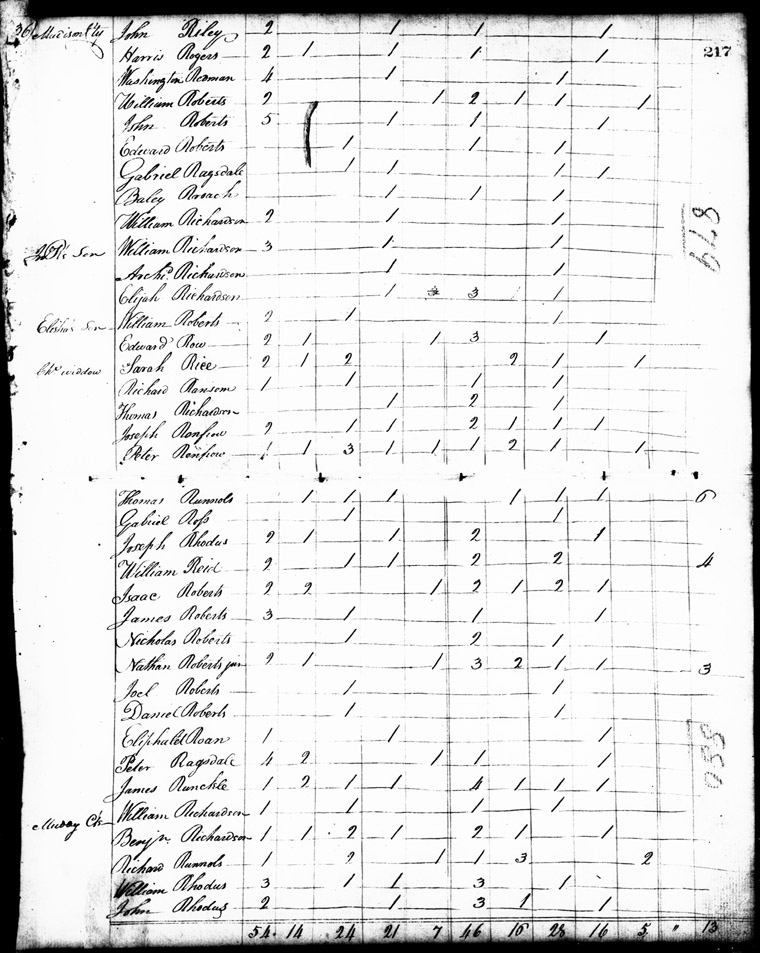 36 Madison Cty John Riley 2 1 1 1
217
Harris Rogers 2 1 1 1 1
Washington Redman 4 1 1
William Roberts 2 1 2 1 1 1
John Roberts 5 1 1 1
Edward Roberts 1 1 1
Gabriel Ragsdale 1 1 1 1
Baley Roach 1 1 1
William Richardson 2 1 1
Son William Richardson 3 1 1
879
Archd. Richardson 1 1
Elijah Richardson 1 3 1 1
Elisha's Son William Roberts 2 1 1
Edward Row 2 1 1 3 1
widdow Sarah Rice 2 1 2 2 1 1
Richard Ransom 1 1 1 1
Thomas Richardson 1 2 1
Joseph Renfrow 2 1 1 2 1 1 1
Peter Renfrow 1 1 3 1 1 1 2 1 1
Thomas Runnols 1 1 1 1 1 1 6
Gabriel Ross 1 1
Joseph Rhodus 2 1 1 2 1
William Reid 2 1 1 2 2 4
Isaac Roberts 2 2 1 2 1 2 1
James Roberts 3 1 1 1
Nicholas Roberts 1 2 1
Nathan Roberts junr 2 1 1 3 2 1 1 3
Joel Roberts 1 1
Daniel Roberts 1 1
Eliphalet Roan 1 1 1
Peter Ragsdale 4 2 1 1 1
James Runckle 1 2 1 1 4 1 1 1
William Richardson 1 1 1 1
Muddy Ck Benjn Richardson 1 1 2 1 2 1 1
Richard Runnols 1 2 1 1 3 2
William Rhodus 3 1 1 3 1
John Rhodus 2 1 3 1 1
54 14 24 21 7 46 16 28 16 5 " 13